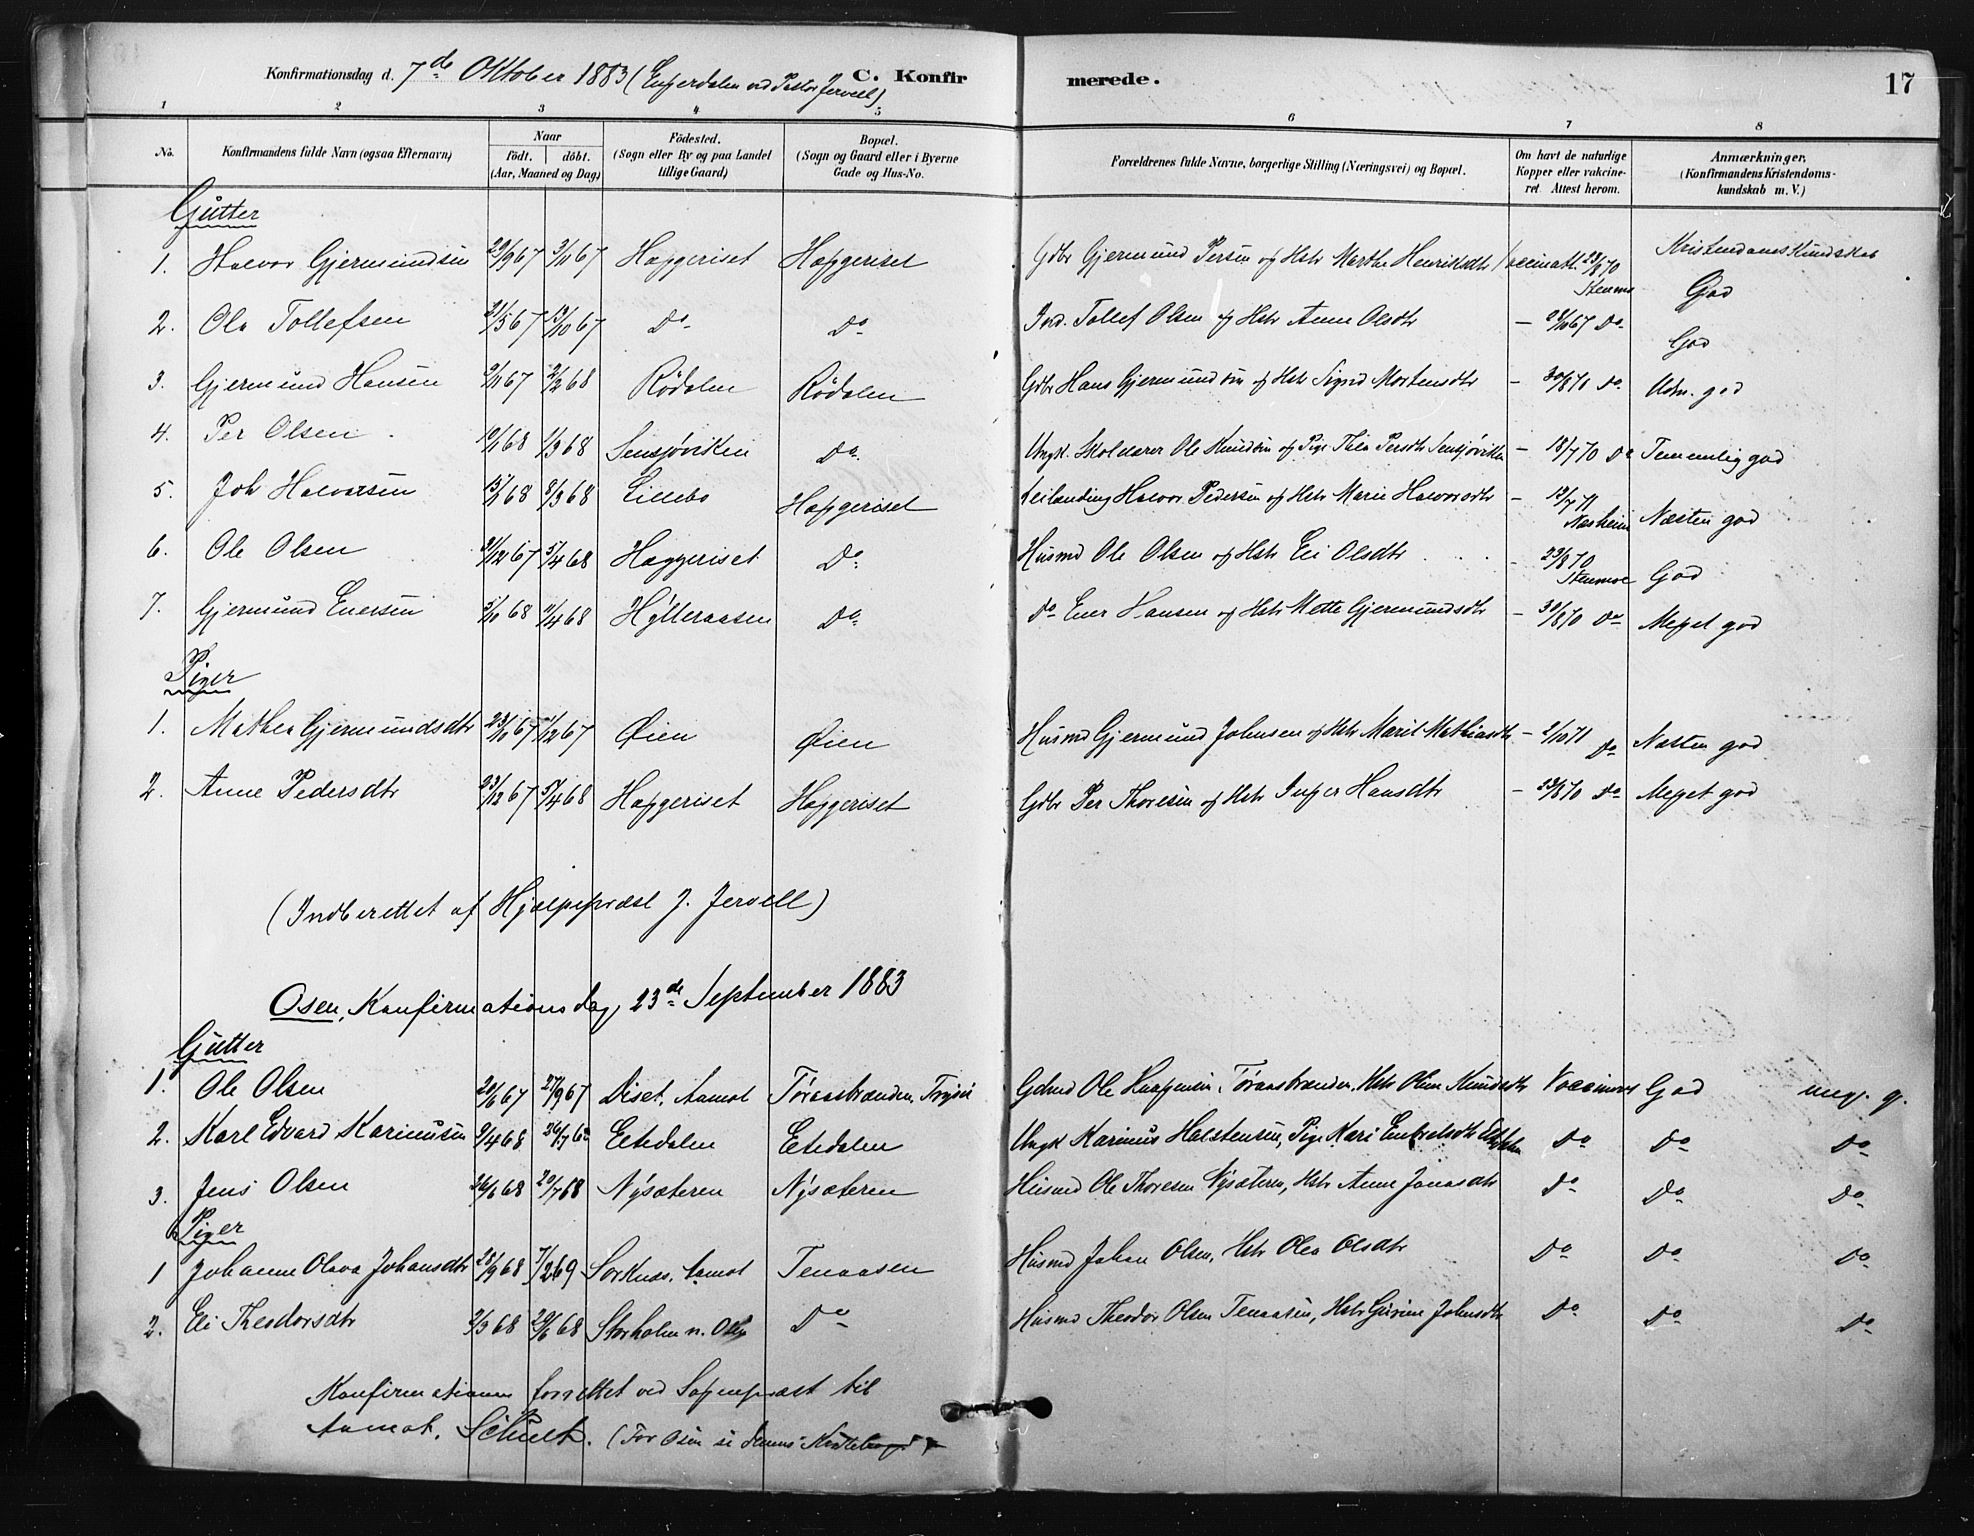 Konfirmationsdag d. 7de Oktober 1883 (Engerdalen ved Pastor Jervell) C. Konfirmerede. 17
1 2 3 4 5 6 7 8
No. Konfirmandens fulde Navn (ogsaa Efternavn) Naar födt. döbt. (Aar, Maaned og Dag) Födested. (Sogn eller By og paa Landet tillige Gaard) Bopæl. (Sogn og Gaard eller i Byerne Gade og Hus-No. Forældrenes fulde Navne, borgerlige Stilling (Næringsvei) og Bopæl. Om havt de naturlige Kopper eller vakcineret. Attest herom. Anmærkninger. (Konfirmandens Kristendomskundskab m. V.)
Gutter
1. Halvor Gjermundsen 29/9 67 3/11 67 Haggeriset Haggeriset Gdbr Gjermund Persen og Hstr Marthe Henriksdtr Vaccinatt. 23/8 70 Stenmo Kristendomskundskab God
2. Ole Tollefsen 21/5 67 13/10 67 Do Do Ind. Tollef Olsen og Hstr Anne Olsdtr — 28/10 67 Do God
3. Gjermund Hansen 9/11 67 2/2 68 Rødalen Rødalen Gdbr Hans Gjermundsen og Hstr Signd Mortensdtr — 30/8 70 Do Udm. god
4. Per Olsen 10/1 68 1/3 68 Sensjøviken Do Ungk. Skolelærer Ole Knudsen og Pige Thea Persdtr Sensjøviken — 18/7 70 Do Temmelig god
5. Joh Halvorsen 15/1 68 8/3 68 Lillebo Haggeriset Leilending Halvor Pedersen og Hstr Marie Halvorsdtr — 13/7 71 Næsheim Næsten god
6. Ole Olsen 31/12 67 5/4 68 Haggeriset Do Husmd Ole Olsen og Hstr Eli Olsdtr — 23/8 70 Stenmoe God
7. Gjermund Enersen 5/10 68 11/4 68 Hylleraasen Do Do Ener Hansen og Hstr Mette Gjermundsdtr — 30/8 70 Do Meget god
Piger
1. Mathea Gjermundsdtr 23/10 67 1/12 67 Øien Øien Husmd Gjermund Johnsen og Hstr Marit Mathiasdtr — 2/10 71 Do Næsten god
2. Anne Pedersdtr 23/12 67 5/4 68 Haggeriset Haggeriset Gdbr Per Thoresen og Hstr Inger Hansdtr — 23/8 70 Do Meget god
(Indberettet af Hjælpepræst J. Jervell)
Osen, Konfirmationsdag 23de September 1883
Gutter
1. Ole Olsen 20/6 67 27/9 67 Diset, Aamot Tøraasbrænden, Trysil Gdmd Ole Haagensen Tøraasbrænden, Hstr Oline Knudsdtr Vaccineret God meg. g.
2. Karl Edvard Karinusen 9/4 68 26/7 68 Eltedalen Eltedalen Ungk Karinus Halstensen, Pige Kari Embretsdtr Do Do Do
3. Jens Olsen 26/6 68 20/7 68 Nysæteren Nysæteren Husmd Ole Thoresen Nysæteren, Hstr Anne Jonasdtr Do Do Do
Piger
1 Johanne Olava Johansdtr 28/9 68 7/2 69 Sorknes, Aamot Tenaasen Husmd Johan Olsen, Hstr Olea Olsdtr Do Do Do
2. Eli Theodorsdtr 2/3 68 29/6 68 Storholm n. Osen Do Husmd Theodor Olsen Tenaasen, Hstr Gurine Johnsdtr Do Do Do
Konfirmationen forrettet ved Sognepræst til
Aamot, Schult. (For Osen se dennes Kirkebog)